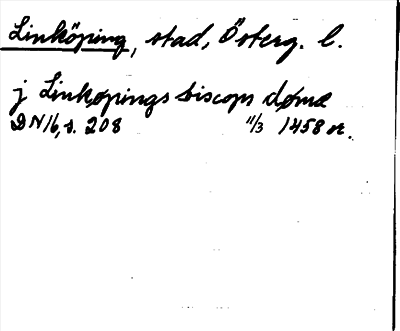 Linköping, stad, Österg. l.
j Linkøpings biscops dømæ
DN 16, s. 208 11/3 1458 or.